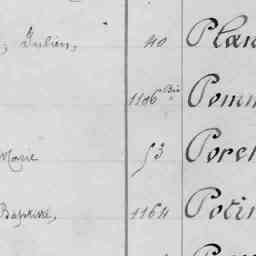 , Julien, 40 Plan
1106 Bis Pomm
Marie 53 Porch
Baptiste, 1164 Potin